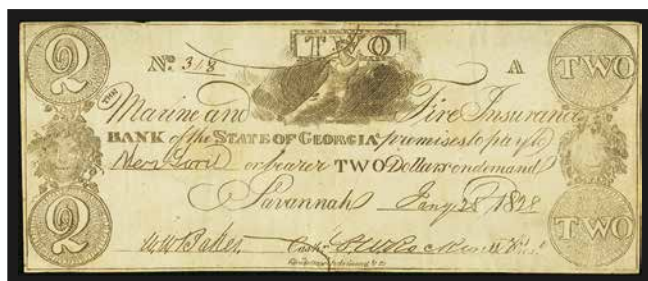 2 TWO TWO
No. 318 A
THE
Marine and Fire Insurance
BANK of the STATE OF GEORGIA promises to pay to
or bearer TWO Dollars on demand
Savannah Jany 28 1828
2 TWO
W W Baker Cashr.